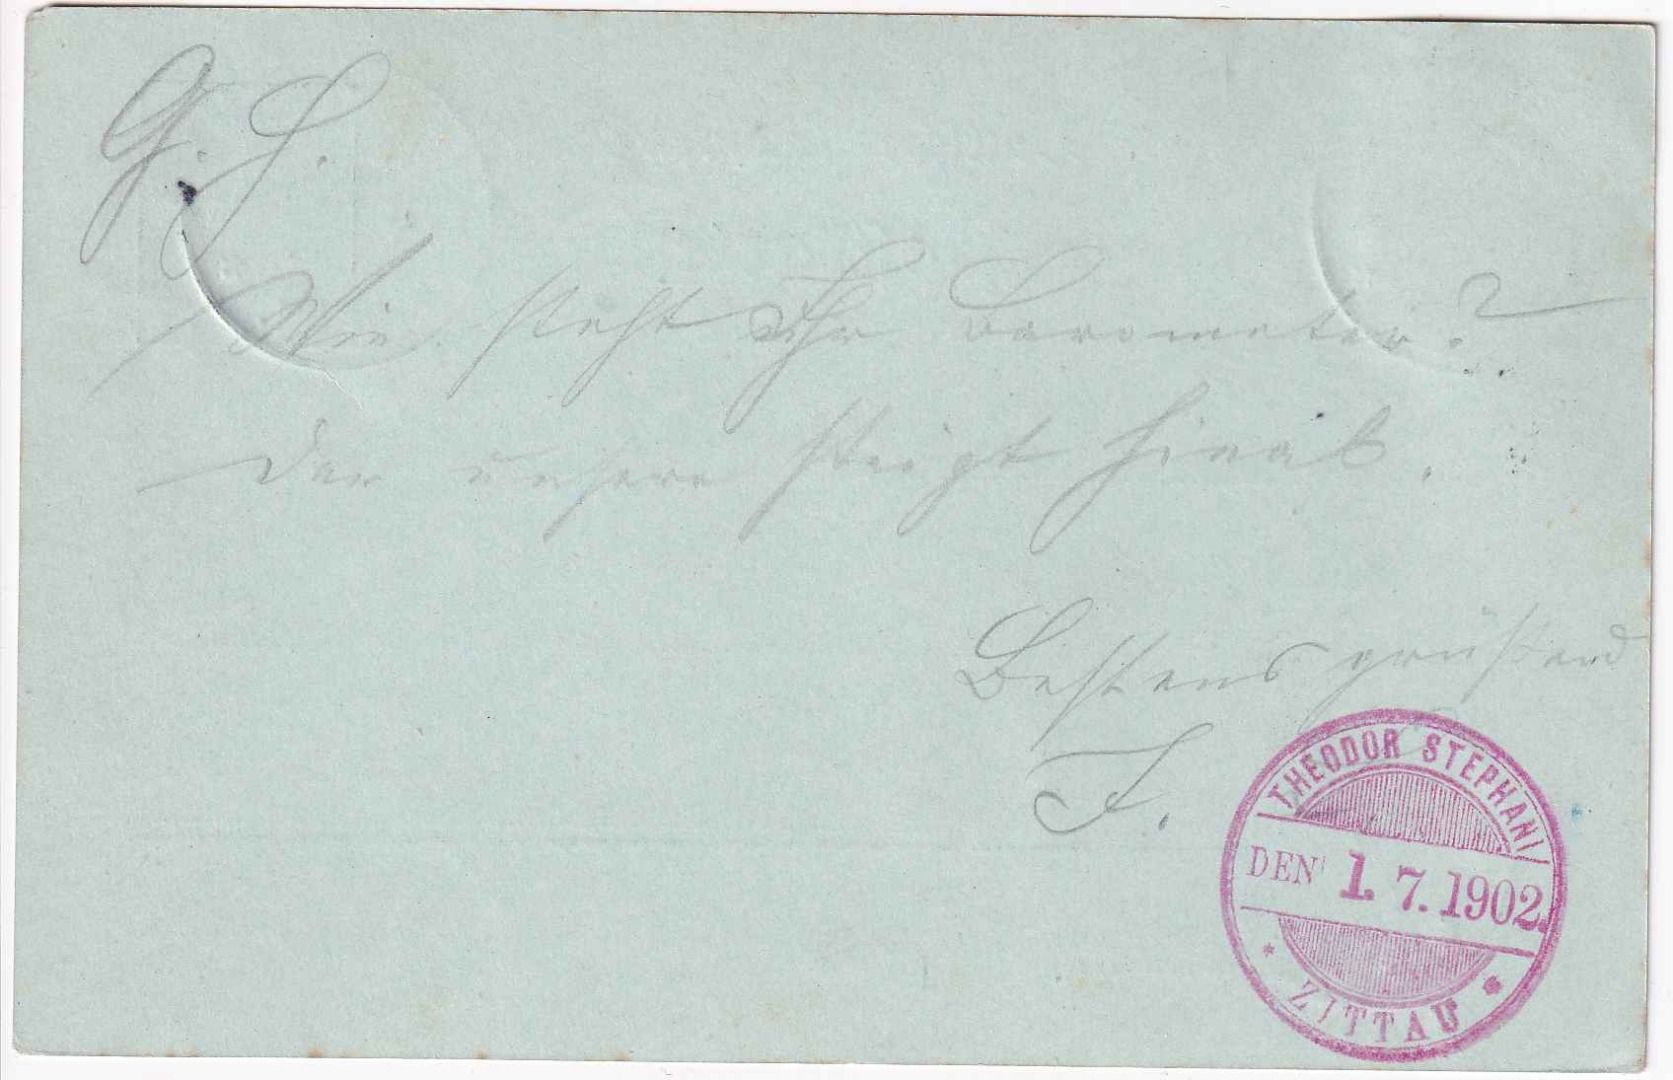 G. H.
Wie steht Ihr Barometer?
Der unsere steigt hinab.
Bestens grüßend
F.
THEODOR STEPHANI
DEN 1. 7. 1902.
* ZITTAU *